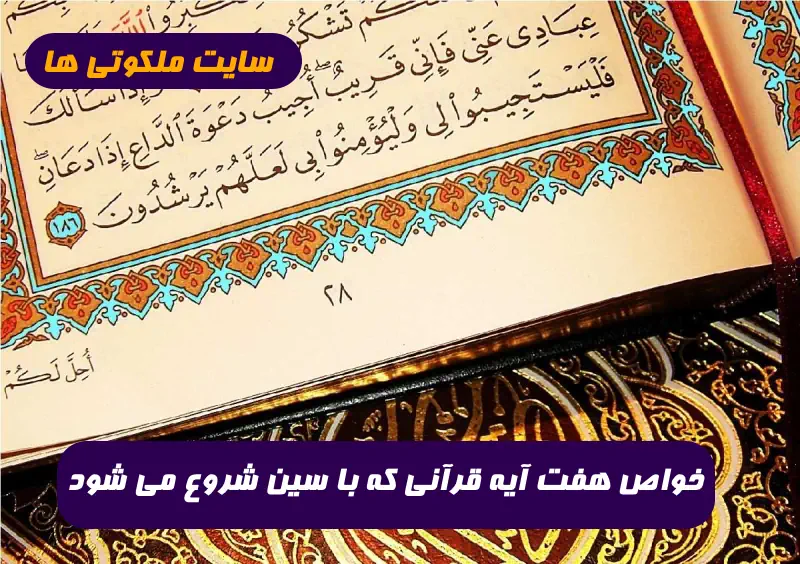 سایت ملکوتی ها
تَشْكُرُ
عِبَادِى عَنِّى فَإِنِّى قَرِيبٌ ۖ أُجِيبُ دَعْوَةَ ٱلدَّاعِ إِذَا دَعَانِ ۖ
فَلْيَسْتَجِيبُوا۟ لِى وَلْيُؤْمِنُوا۟ بِى لَعَلَّهُمْ يَرْشُدُونَ ١٨٦
٢٨
أُحِلَّ لَكُمْ
خواص هفت آیه قرآنی که با سین شروع می شود